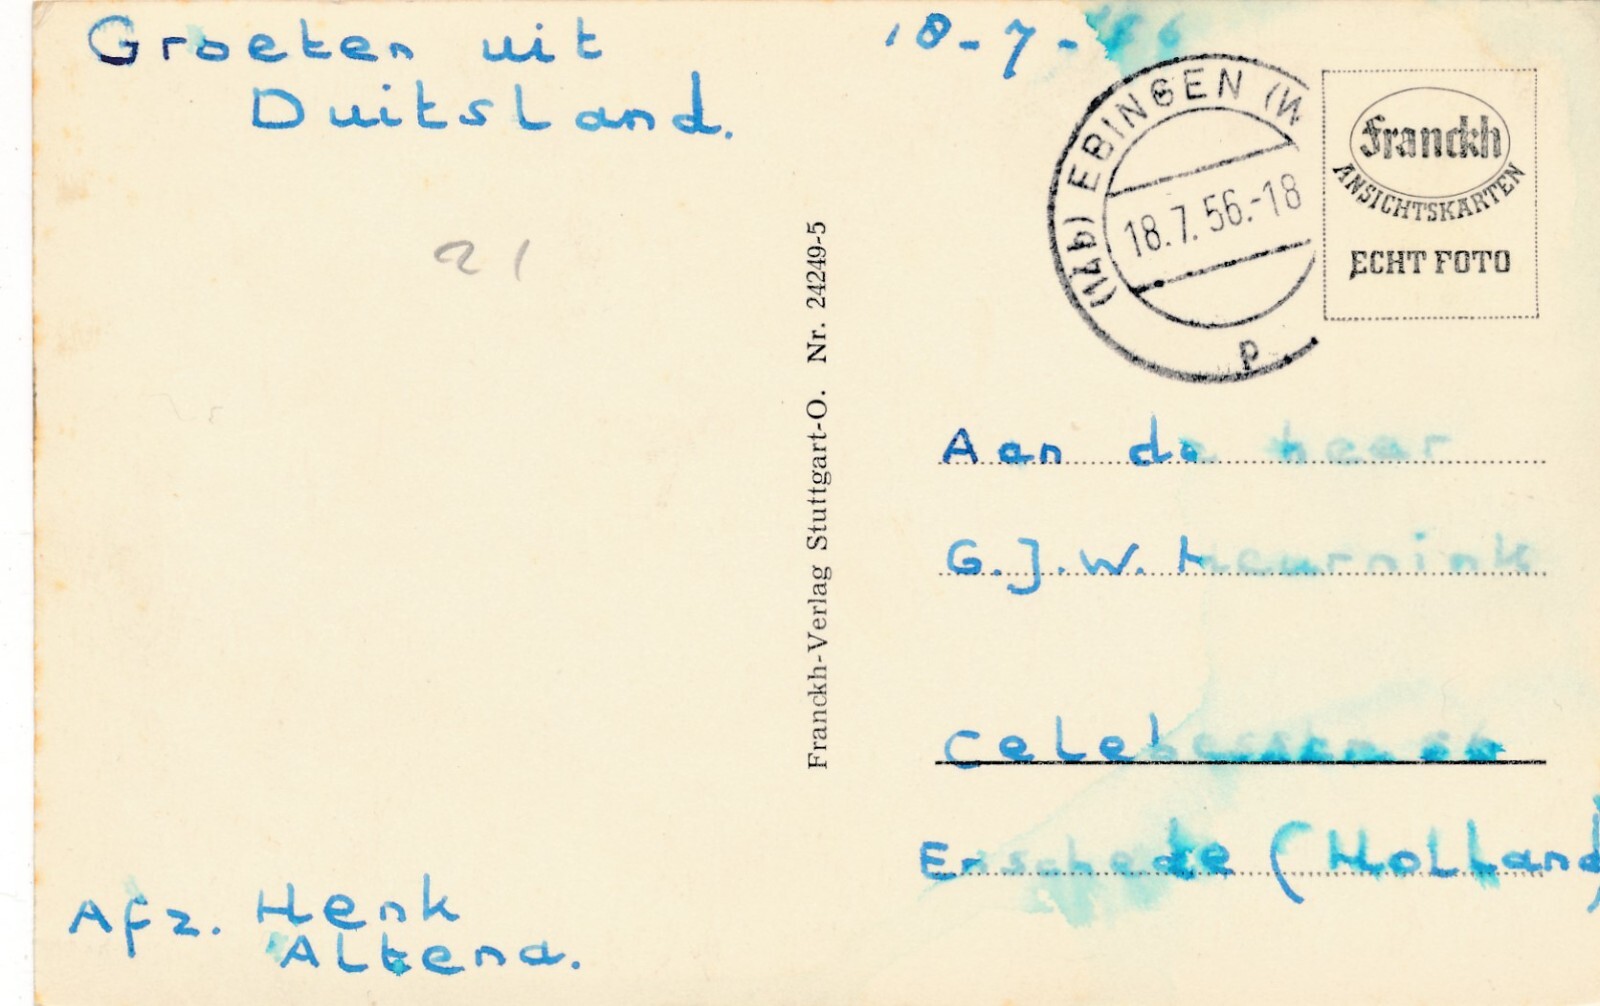 Groeten uit
Duitsland.
21
Afz. Henk
Altena.
Franckh-Verlag Stuttgart-O. Nr. 24249-5
18-7-56
(14b) EBINGEN (W
18.7.56.-18
p
Franckh
ANSICHTSKARTEN
ECHT FOTO
Aan de heer
G.J.W. Heurnink
Celebes
Enschede (Holland)